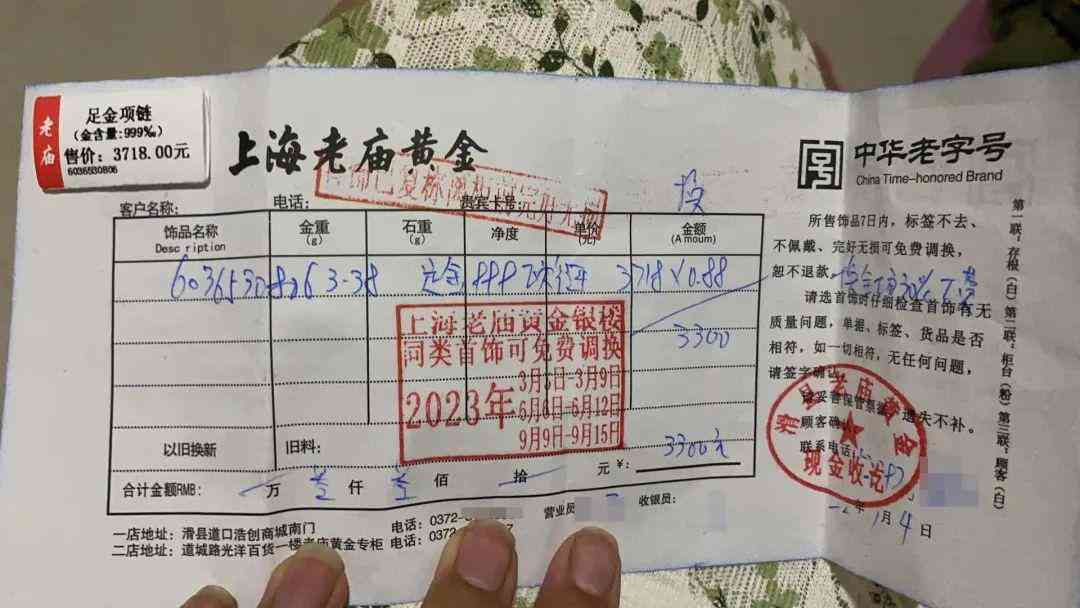 老庙
足金项链
(金含量:999‰)
售价：3718.00元
6036530806
上海老庙黄金
中华老字号
China Time-honored Brand
客户名称：
电话：
贵宾卡号：
换
饰品名称
Desc ription
金重
(g)
石重
(g)
净度
单价
(元)
金额
(A moum)
6036530806 3.38 足金999 项链 3718×0.88
3300
上海老庙黄金银楼
同类首饰可免费调换
2023年
3月3日-3月9日
6月6日-6月12日
9月9日-9月15日
以旧换新
旧料：
元 ¥：
3300元
合计金额RMB：
万 叁 仟 叁 佰 拾
营业员
收银员：
一店地址：滑县道口浩创商城南门
电话：0372-
二店地址：道城路光洋百货一楼老庙黄金专柜
电话：0372-
所售饰品7日内，标签不去、
不佩戴、完好无损可免费调换，
恕不退款。
请选首饰时仔细检查首饰有无
质量问题，单据、标签、货品是否
相符，如一切相符，无任何问题，
请签字确认。
请妥善保管票据，遗失不补。
顾客确认
联系电话
老庙黄金
现金收讫
月4日
第一联：存根(白) 第二联：柜台(粉) 第三联：顾客(白)